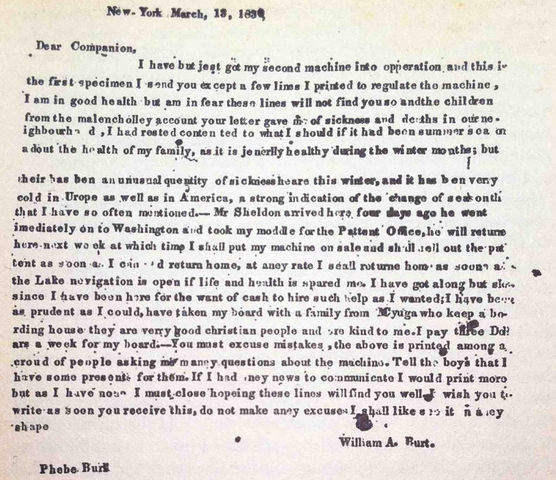 New-York March, 13, 1830,
Dear Companion,
I have but jest got my second machine into opperation and this is
the first specimen I send you except a few lines I printed to regulate the machine,
I am in good health but am in fear these lines will not find you so and the children
from the malencholley account your letter gave me of sickness and deaths in our ne-
ighbourhood, I had rested contented to what I should if it had been summer season
adout the health of my family, as it is jenerlly healthy during the winter months; but
their has ben an unusual quentity of sickness heare this winter, and it has ben very
cold in Urope as well as in America, a strong indication of the change of seasons
that I have so often mentioned.— Mr Sheldon arrived here four days ago he went
imediately on to Washington and took my moddle for the Pattent Office, he will return
here next week at which time I shall put my machine on sale and shall sell out the pat
tent as soon as I can and return home, at aney rate I shall returne home as soone as
the Lake nevigation is open if life and health is spared me. I have got along but slow
since I have been here for the want of cash to hire such help as I wanted; I have been
as prudent as I could, have taken my board with a family from Cayuga who keep a bo-
rding house they are very good christian people and are kind to me. I pay three Doll
ars a week for my board.—You must excuse mistakes, the above is printed among a
croud of people asking me maney questions about the machine. Tell the boys that I
have some presents for them. If I had aney news to communicate I would print more
but as I have none I must close hopeing these lines will find you well. I wish you to
write as soon you receive this, do not make aney excuses I shall like see it in aney
shape
William A. Burt.
Phebe Burt